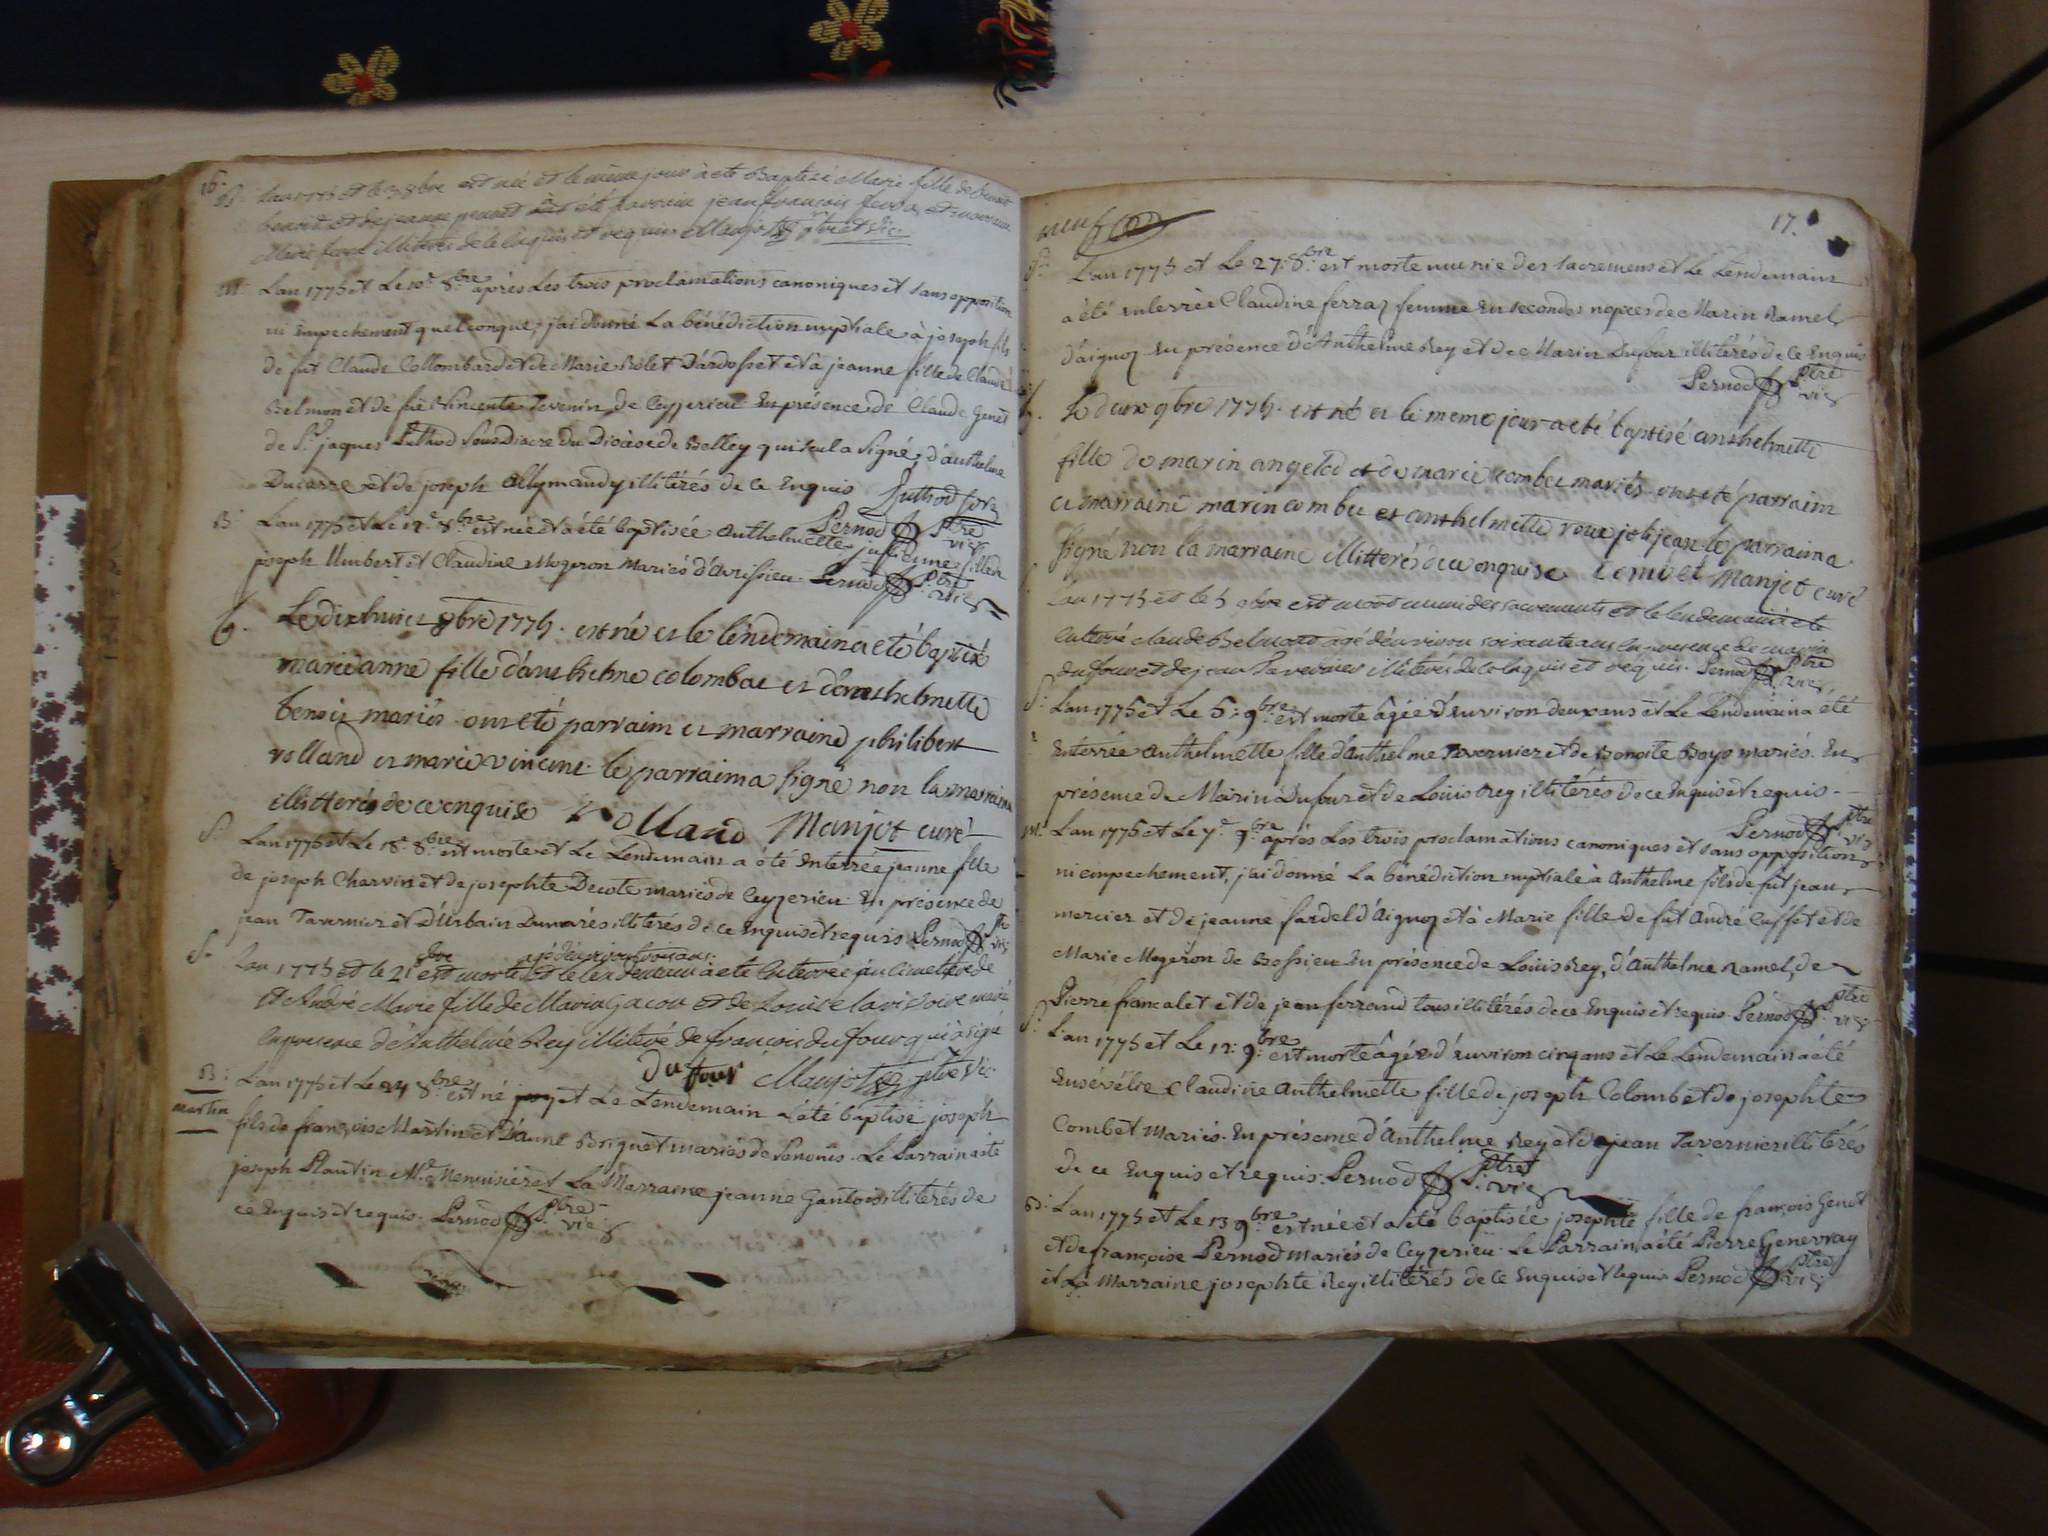 16.
B. Lan 1775 et le 3 8bre est née et le même jour à eté Baptisé Marie fille de
benoit et de jeanne ont été parrain jean francois ferra et marraine
Marie illiterés de ce enquis et requis Manjot ptre et Vic.
M. Lan 1775 et Le 10e 8bre après Les trois proclamations canoniques et sans opposition
ni Empechement quelconque, j'ai donné La bénédiction nuptiale à joseph fils
de fût Claude Collombard et de Marie Rolet D'ardosset et à jeanne fille de Claude
Belmon et dé fûe Vincente Tevenin de Ceyzerieu En présence de Claude Genet
de Sr. jaques Luthod Sous Diacre du Diocèse de Belley qui seul a Signé, d'authelme
Ducarre et de joseph Allymandy illitérés de ce Enquis Luthod
Pernod Ptre vic
B. Lan 1775 et Le 12e 8bre est née et a été baptisée Anthelmette jullienne fille de
joseph Umbert et Claudine Mogeron Mariés d'Avrissieu Pernod Ptre vic
b. Le dixhuict 8bre 1775. est né et le lendemain a eté baptisé
marieanne fille d'anthelme colombat et d'anthelmette
benoit mariés. ont eté parrain et marraine philibert
volland et marie vincent. le parrain a signé non la marraine
illitterés de ce enquise Volland Manjot curé
S. Lan 1775 et Le 18e 8bre est morte et Le Lendemain a été Enterrée jeanne fille
de joseph Charvin et de josephte Decote mariés de Ceyzerieu En présence de
jean Tavernier et D'Urbain Dumarès illitérés de ce Enquis et requis Pernod Ptre vic
S. Lan 1775 et le 21 8bre est morte et le lendemain à eté Enterrée au Cimetiere de
St André Marie fille de Marin Gacon et de Louise mariés
en presence d'Anthelme Rey illiteré de francois dufour qui à signé
dufour Manjot ptre Vic
B. Lan 1775 et Le 24 8bre est né et Le Lendemain a été baptisé joseph
Martin
fils de françois Martin et D'anne Brignet mariés de . Le Parrain a été
joseph Plantin Me Menuisier et La Marraine jeanne Gantois illitérés de
ce Enquis et requis. Pernod Ptre vic
neuf
17.
S. L'an 1775 et Le 27e 8bre est morte munie des sacremens et Le Lendemain
a été enterrée Claudine ferraz femme En secondes nopces de Marin Ramel
d'aignoz En présence d'Anthelme Rey et de Marin Dufour illitérés de ce Enquis
Pernod Ptre vic
b. Le deux 9bre 1775. est né et le meme jour a eté baptisé anthelmette
fille de marin angelod et de marie combet mariés ont eté parrain
et marraine marin combet et anthelmette roux joli jean le parrain a
signé non la marraine illitterés de ce enquise Combet Manjot curé
Lan 1775 et le 5 9bre est mort muni des sacrements et le lendemain à eté
Enterré claude Belmont agé d'environ soixante ans en presence de marin
dufour et de jean Tavernier illiterés de ce Enquis et requis. Pernod Ptre vic
S. L'an 1775 et Le 5e 9bre est morte âgée d'environ deux ans et Le Lendemain a été
Enterrée Anthelmette fille d'Anthelme Tavernier et de Benoite Goyo mariés. En
présence de Marin Dufour et de Louis Rey illitérés de ce Enquis et requis.
Pernod Ptre vic
M. L'an 1775 et Le 7e 9bre après Les trois proclamations canoniques et sans opposition
ni empechement, j'ai donné La bénédiction nuptiale à Anthelme fils de fût jean
mercier et de jeanne fardel d'Aignoz et à Marie fille de fût André Cuffet et de
Marie Mogeron de Bossieu En présence de Louis Rey, d'Anthelme Ramel, de
Pierre francalet et de jean ferrand tous illitérés de ce Enquis et requis. Pernod Ptre vic
S. L'an 1775 et Le 12e 9bre est morte âgée d'Environ cinq ans et Le Lendemain a été
Ensévélie Claudine Anthelmette fille de joseph Colombet de josephte
Combet Mariés. En présence d'Anthelme Rey et de jean Tavernier illitérés
de ce Enquis et requis. Pernod Ptre vic
B. L'an 1775 et Le 13 9bre est née et a été baptisée josephte fille de françois Genet
et de françoise Pernod mariés de Ceyzerieu. Le Parrain a été Pierre Genevray
et La Marraine josephte Rey illitérés de ce Enquis et requis Pernod Ptre vic